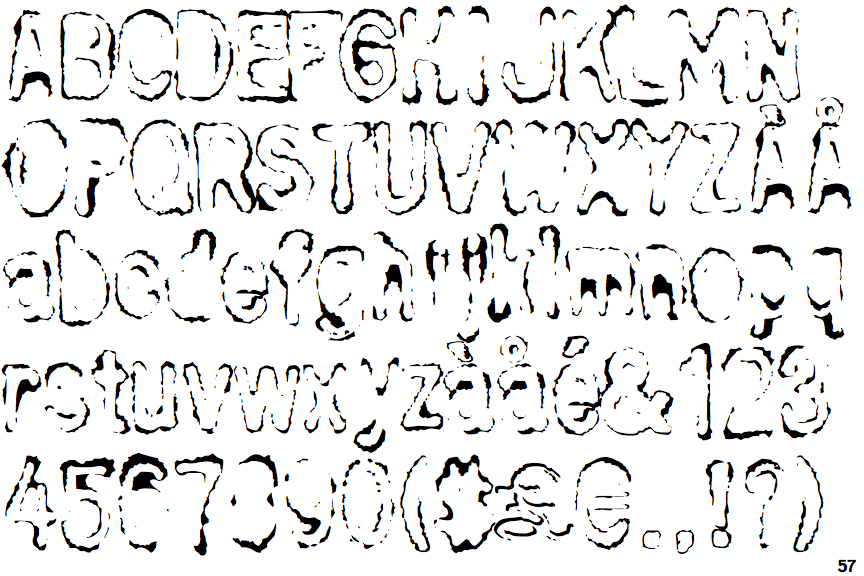 ABCDEFGHIJKLMN
OPQRSTUVWXYZÀÅ
abcdefghijklmnopq
rstuvwxyzàåé&123
4567890($£€.,!?)
57